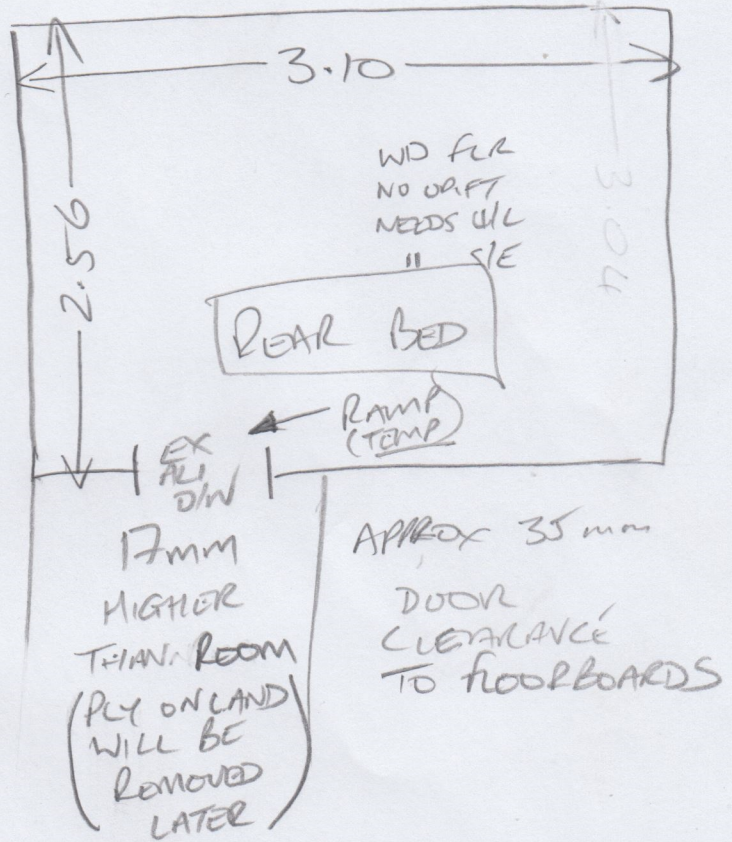 3.10
2.56
3.04
WD FLR
NO UPLIFT
NEEDS U/L
" S/E
REAR BED
RAMP
(TEMP)
EX
ALI
D/W
17mm
HIGHER
THAN ROOM
(PLY ON LAND
WILL BE
REMOVED
LATER)
APPROX 35mm
DOOR
CLEARANCE
TO FLOORBOARDS